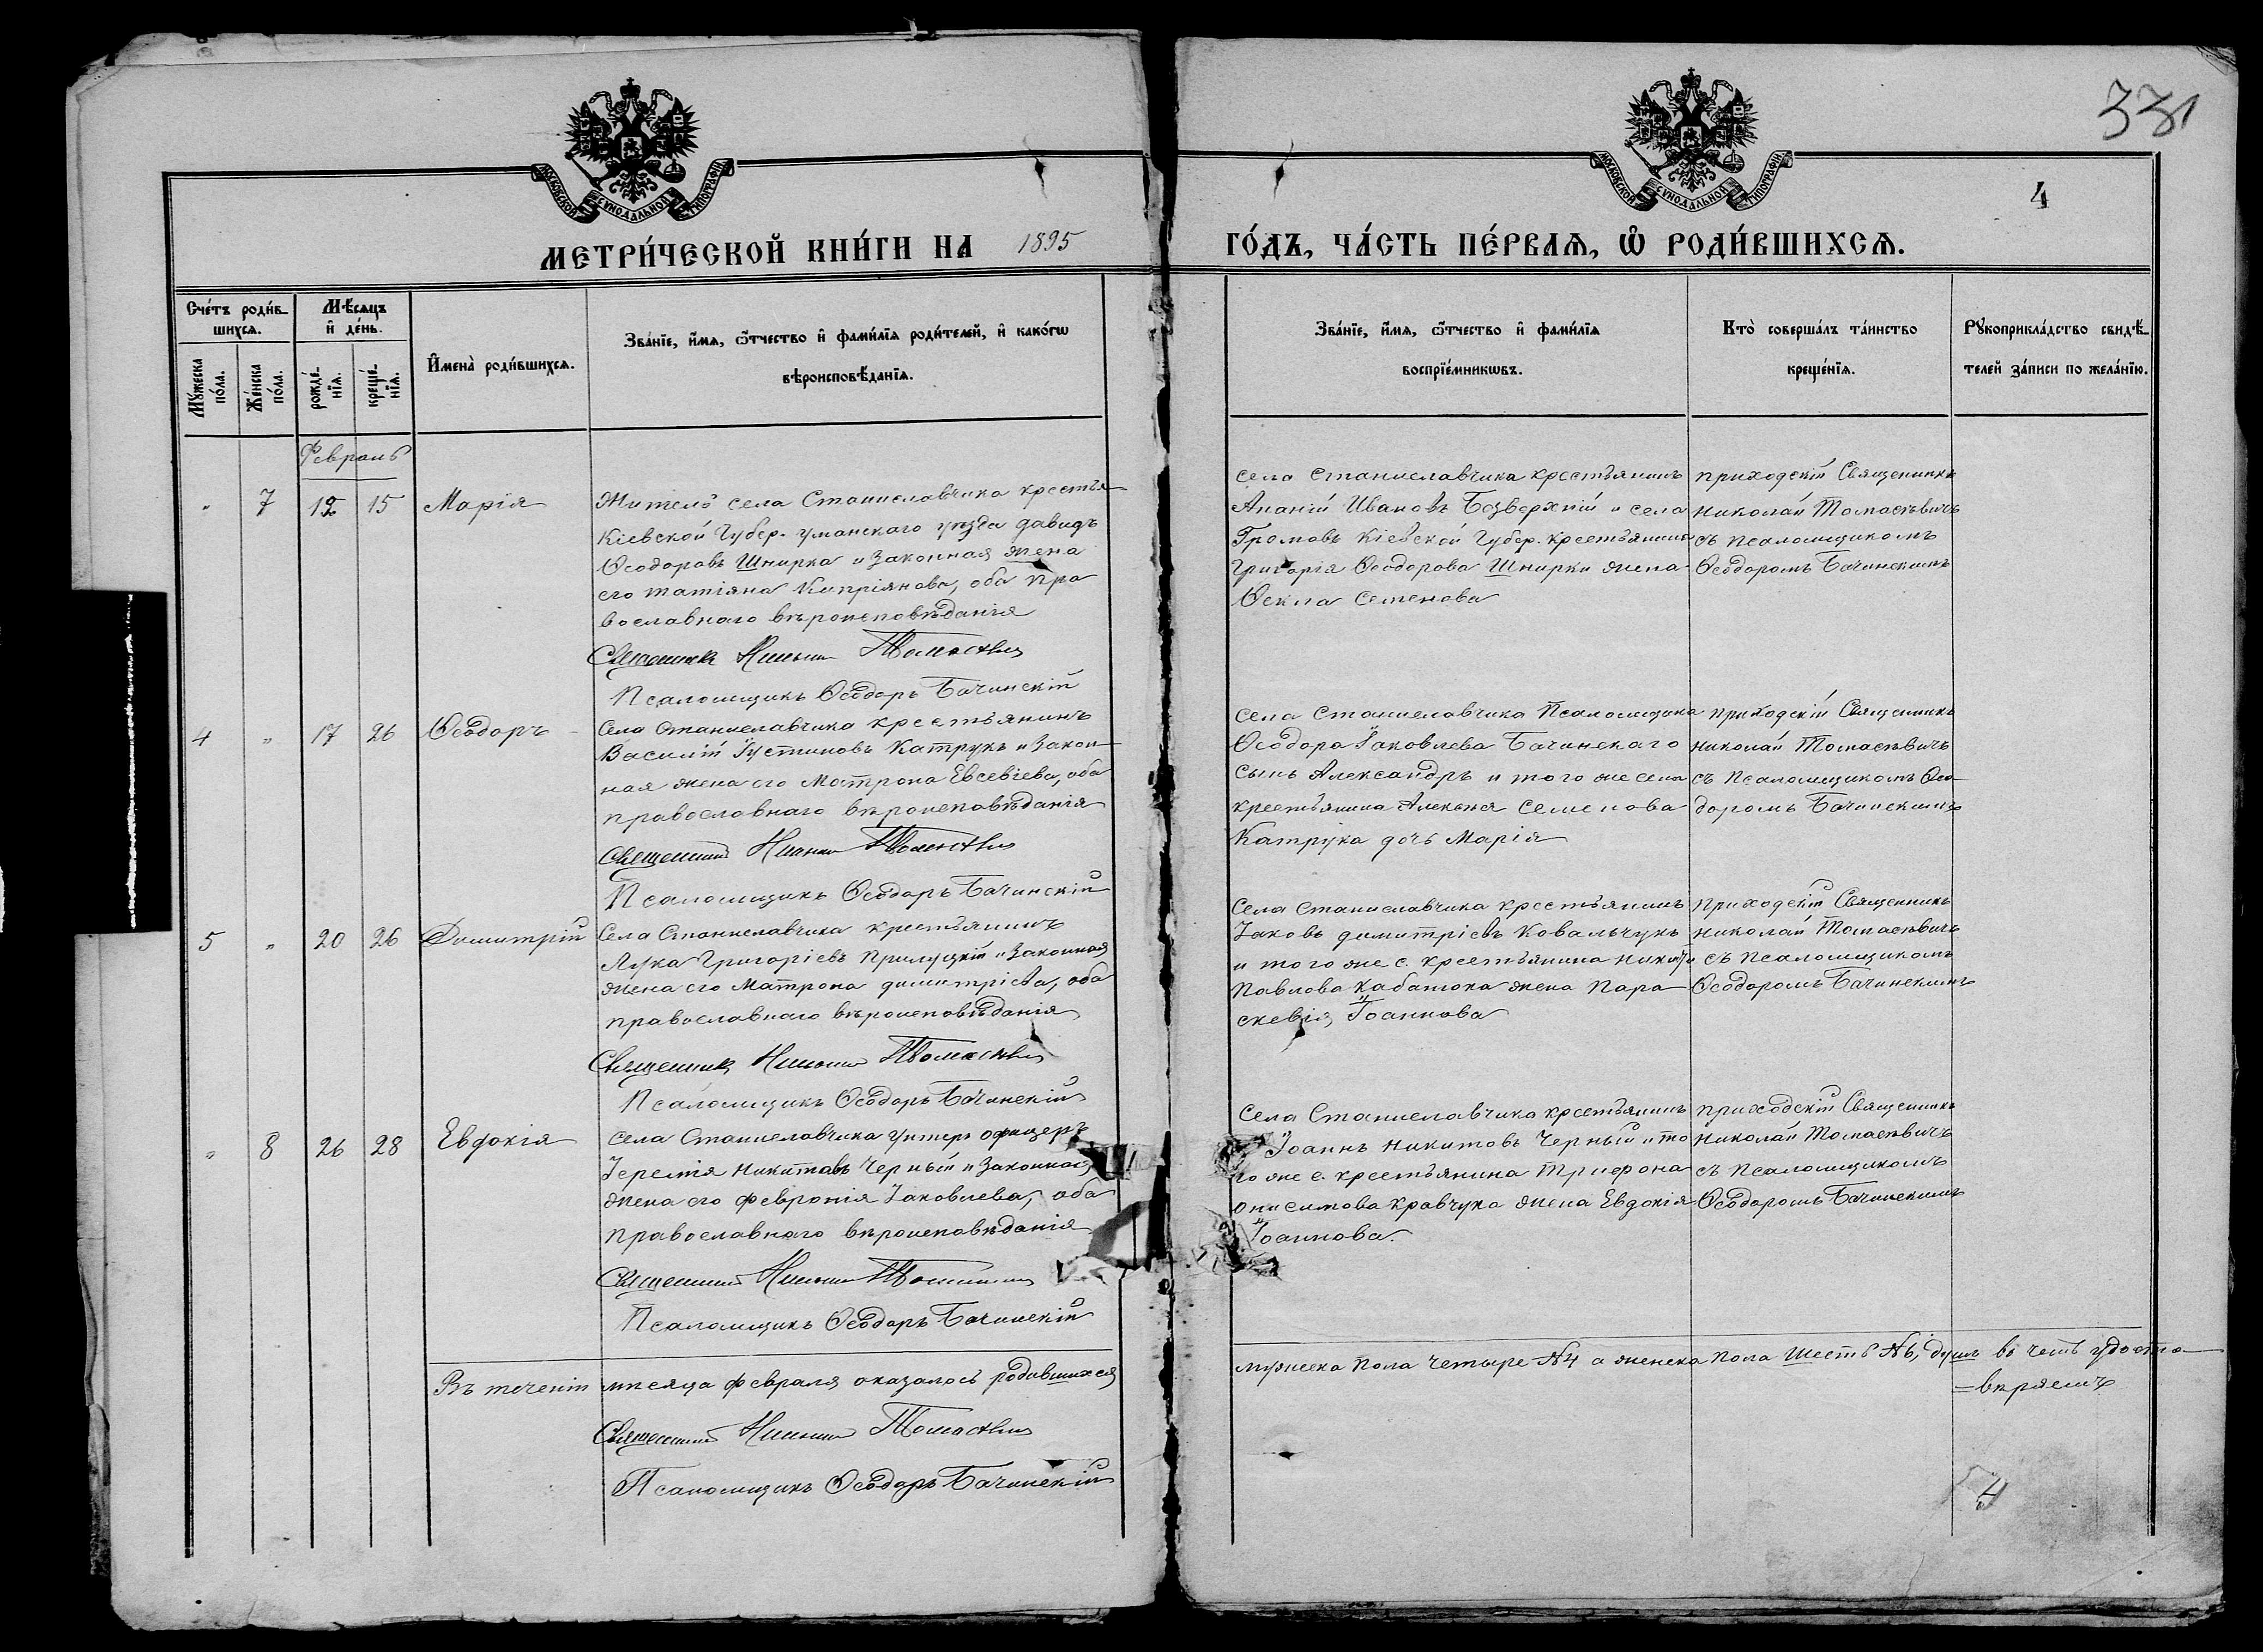 331
4
МОСКОВСКОЙ СУНОДАЛЬНОЙ ТИПОГРАФІИ
МОСКОВСКОЙ СУНОДАЛЬНОЙ ТИПОГРАФІИ
МЕТРИ́ЧЕСКОЙ КНИ́ГИ НА 1895 ГО́ДЪ, ЧА́СТЬ ПЕ́РВАѦ, Ѡ҆ РОДИ́ВШИХСѦ.
Сче́тъ роди́в-
шихсѧ.
Мѣ́сѧцъ
и҆ де́нь.
Мꙋ́жеска
по́ла.
Же́нска
по́ла.
рожде́-
нїѧ.
креще́-
нїѧ.
И҆мена̀ роди́вшихсѧ.
Зва́нїе, и҆́мѧ, ѻ҆́тчество и҆ фами́лїѧ роди́телей, и҆ како́гѡ
вѣроисповѣ́данїѧ.
Зва́нїе, и҆́мѧ, ѻ҆́тчество и҆ фами́лїѧ
воспрїе́мникѡвъ.
Кто̀ соверша́лъ та́инство
креще́нїѧ.
Рꙋкоприкла́дство свидѣ́-
телей за́писи по жела́нїю.
Февраль
" 7 12 15 Марія
Житель села Станиславчика крестья-
Кіевской Губер. уманскаго уѣзда давидъ
Ѳеодоровъ Шнирка и законная жена
его татіяна Кипріянова, оба пра
вославнаго вѣроисповѣданія
Священникъ Николай Томасѣвич
Псаломщикъ Ѳеодоръ Бачинскій
села Станиславчика крестьянинъ
Ананій Ивановъ Безверхній и села
Громовъ Кіевской Губер. крестьянина
Григорія Ѳеодорова Шнирки жена
Ѳекла Семенова
приходскій Священникъ
Николай Томасѣвичъ
съ псаломщикомъ
Ѳеодоромъ Бачинскимъ
4 " 17 26 Ѳеодоръ
Села Станиславчика крестьянинъ
Василій Іустиновъ Катрукъ и закон-
ная жена его Матрона Евсевіева, оба
православнаго вѣроисповѣданія
Священник Николай Томасѣвич
Псаломщикъ Ѳеодоръ Бачинскій
Села Станиславчика Псаломщика
Ѳеодора Іаковлева Бачинскаго
сынъ Александръ и того же села
крестьянина Алексѣя Семенова
Катрука дочь Марія
приходскій Священникъ
Николай Томасѣвичъ
съ Псаломщикомъ Ѳео-
доромъ Бачинскимъ
5 " 20 26 Димитрій
Села Станиславчика крестьянинъ
Лука Григоріевъ Прилуцкій и законная
жена его Матрона димитріева, оба
православнаго вѣроисповѣданія
Священник Николай Томасѣвич
Псаломщикъ Ѳеодоръ Бачинскій
Села Станиславчика крестьянинъ
Іаковъ димитріевъ Ковальчукъ
и того же с. крестьянина Никиты
Павлова Кабанюка жена Пара-
скевія Іоаннова
приходскій Священникъ
Николай Томасѣвичъ
съ Псаломщикомъ
Ѳеодоромъ Бачинскимъ
" 8 26 28 Евдокія
Села Станиславчика унтеръ офицеръ
Іеремія Никитовъ Черный и законная
жена его февронія Іаковлева, оба
православнаго вѣроисповѣданія
Священник Николай Томасѣвич
Псаломщикъ Ѳеодоръ Бачинскій
Села Станиславчика крестьянинъ
Іоаннъ Никитовъ Черный и то
го же с. крестьянина Трифона
Онисимова Кравчука жена Евдокія
Іоаннова.
приходскій Священникъ
Николай Томасѣвичъ
съ Псаломщикомъ
Ѳеодоромъ Бачинскимъ
Въ теченіи мѣсяца февраля оказалось родившихся мужеска пола четыре №4 а женска пола шесть №6, душъ въ чемъ удосто-
=вѣряемъ
Священник Николай Томасѣвич
Псаломщикъ Ѳеодоръ Бачинскій
4